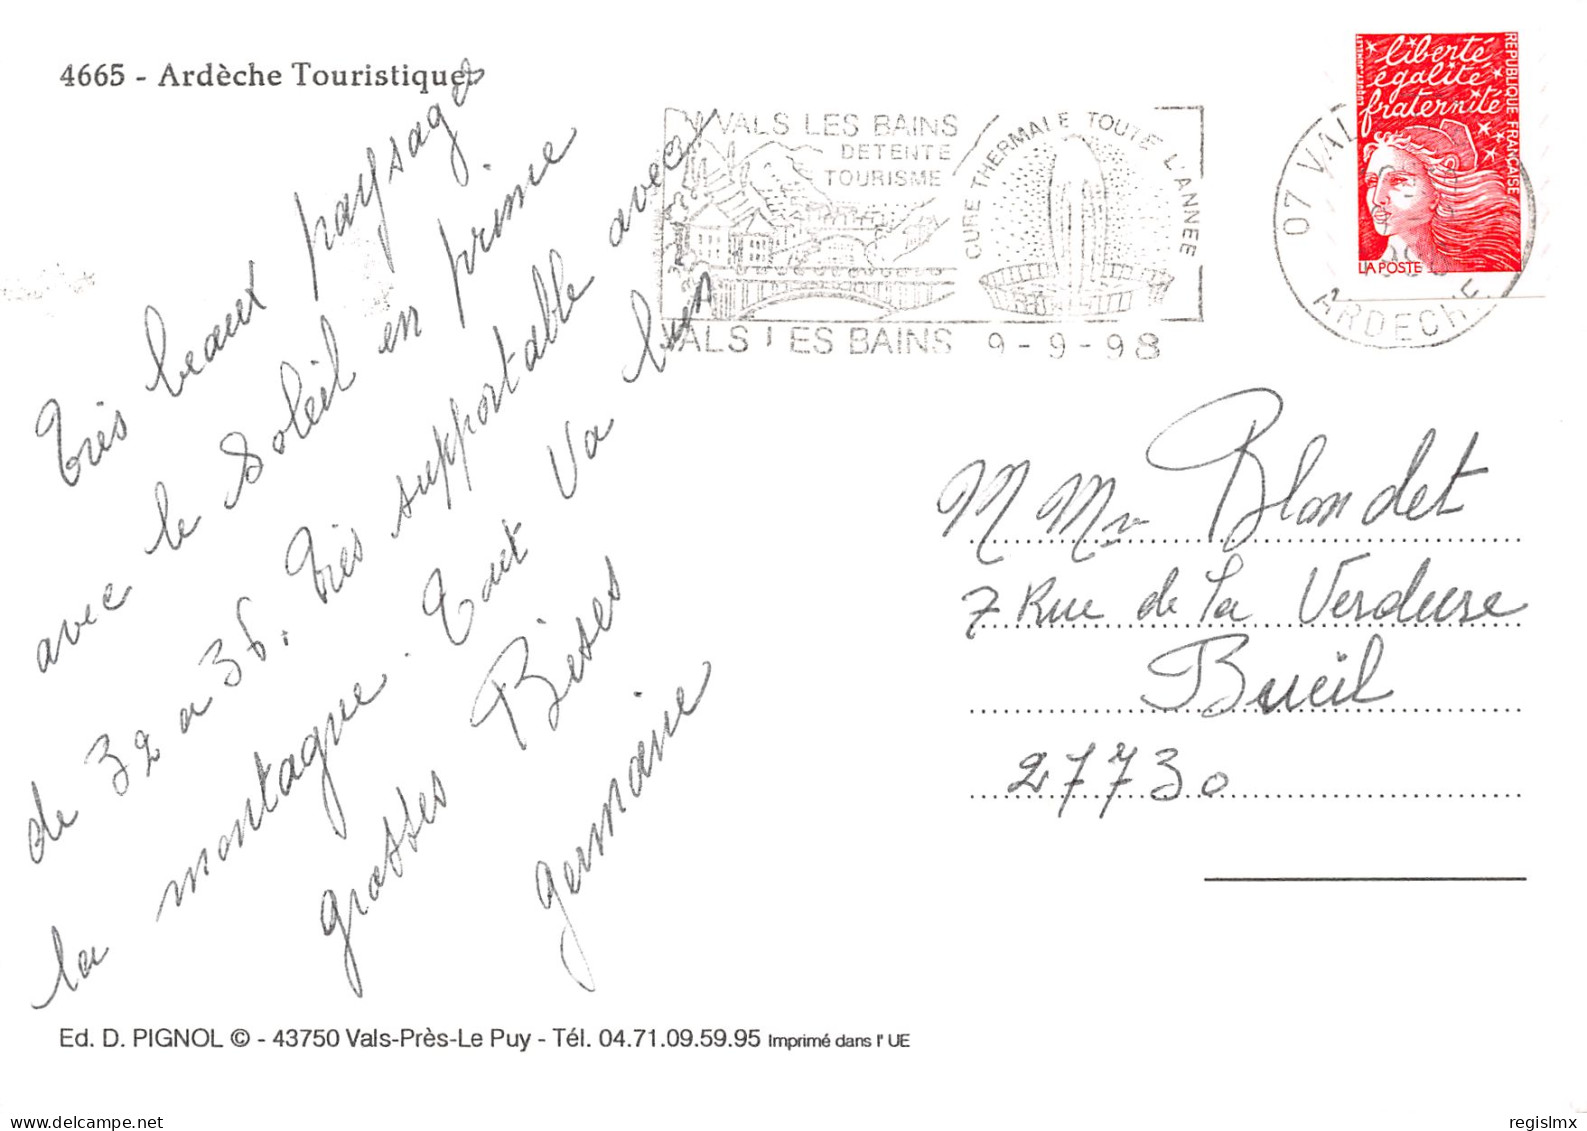 4665 - Ardèche Touristique
Très beaux paysages
avec le soleil en prime
de 32 a 36. Très supportable avec
la montagne. Tout va bien
grosses Bises
germaine
VALS LES BAINS
DETENTE
TOURISME
CURE THERMALE TOUTE L'ANNEE
VALS LES BAINS 9-9-98
07 VAL
ARDECHE
liberté
égalité
fraternité
REPUBLIQUE FRANÇAISE
LA POSTE
M Mme Blondet
7 Rue de la Verdure
Bueil
27730
Ed. D. PIGNOL © - 43750 Vals-Près-Le Puy - Tél. 04.71.09.59.95 Imprimé dans l' UE
regislmx